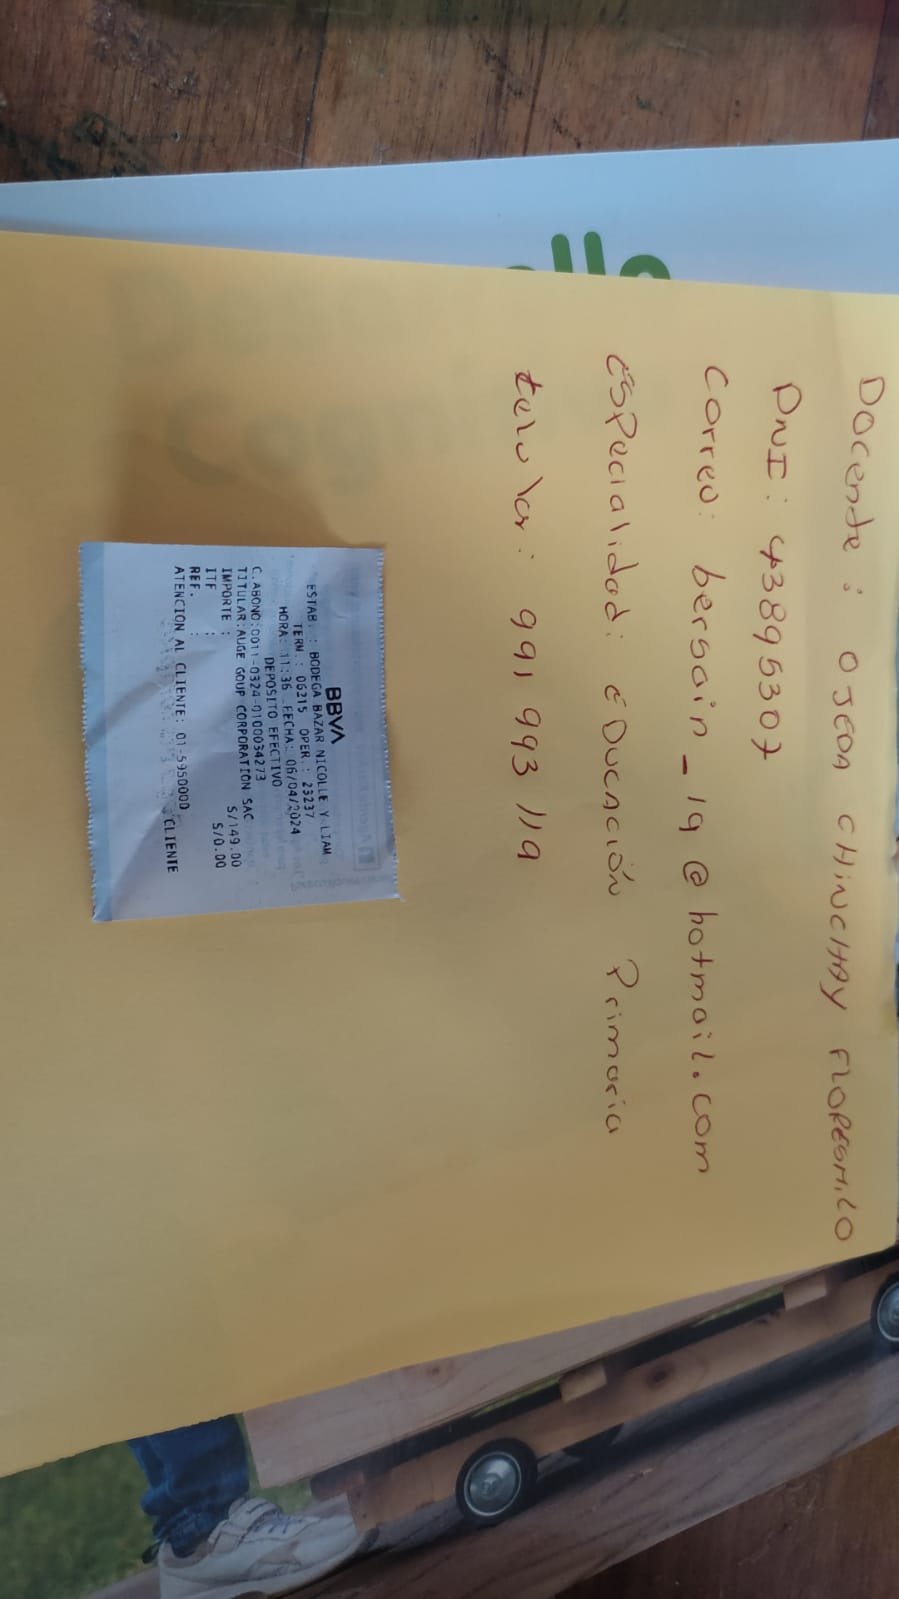 Docente : OJEDA CHINCHAY FLORESMILO
DNI: 43895307
Correo: bersain_19@hotmail.com
ESPecialidad: EDUCACIÓN Primaria
celular: 991 993 119
BBVA
ESTAB. : BODEGA BAZAR NICOLLE Y LIAM
TERM. : 06215 OPER. : 23237
HORA: 11:36 FECHA: 06/04/2024
DEPOSITO EFECTIVO
C.ABONO:0011-0324-0100034273
TITULAR:AUGE GOUP CORPORATION SAC
IMPORTE : S/149.00
ITF : S/0.00
REF. :
ATENCION AL CLIENTE: 01-5950000
CLIENTE